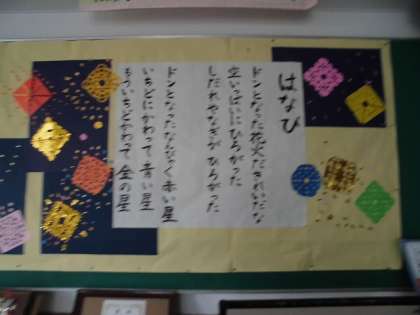 はなび
ドンとなった花火だきれいだな
空いっぱいにひろがった
しだれやなぎがひろがった
ドンとなったなんびゃく赤い星
いちどにかわって青い星
もういちどかわって金の星